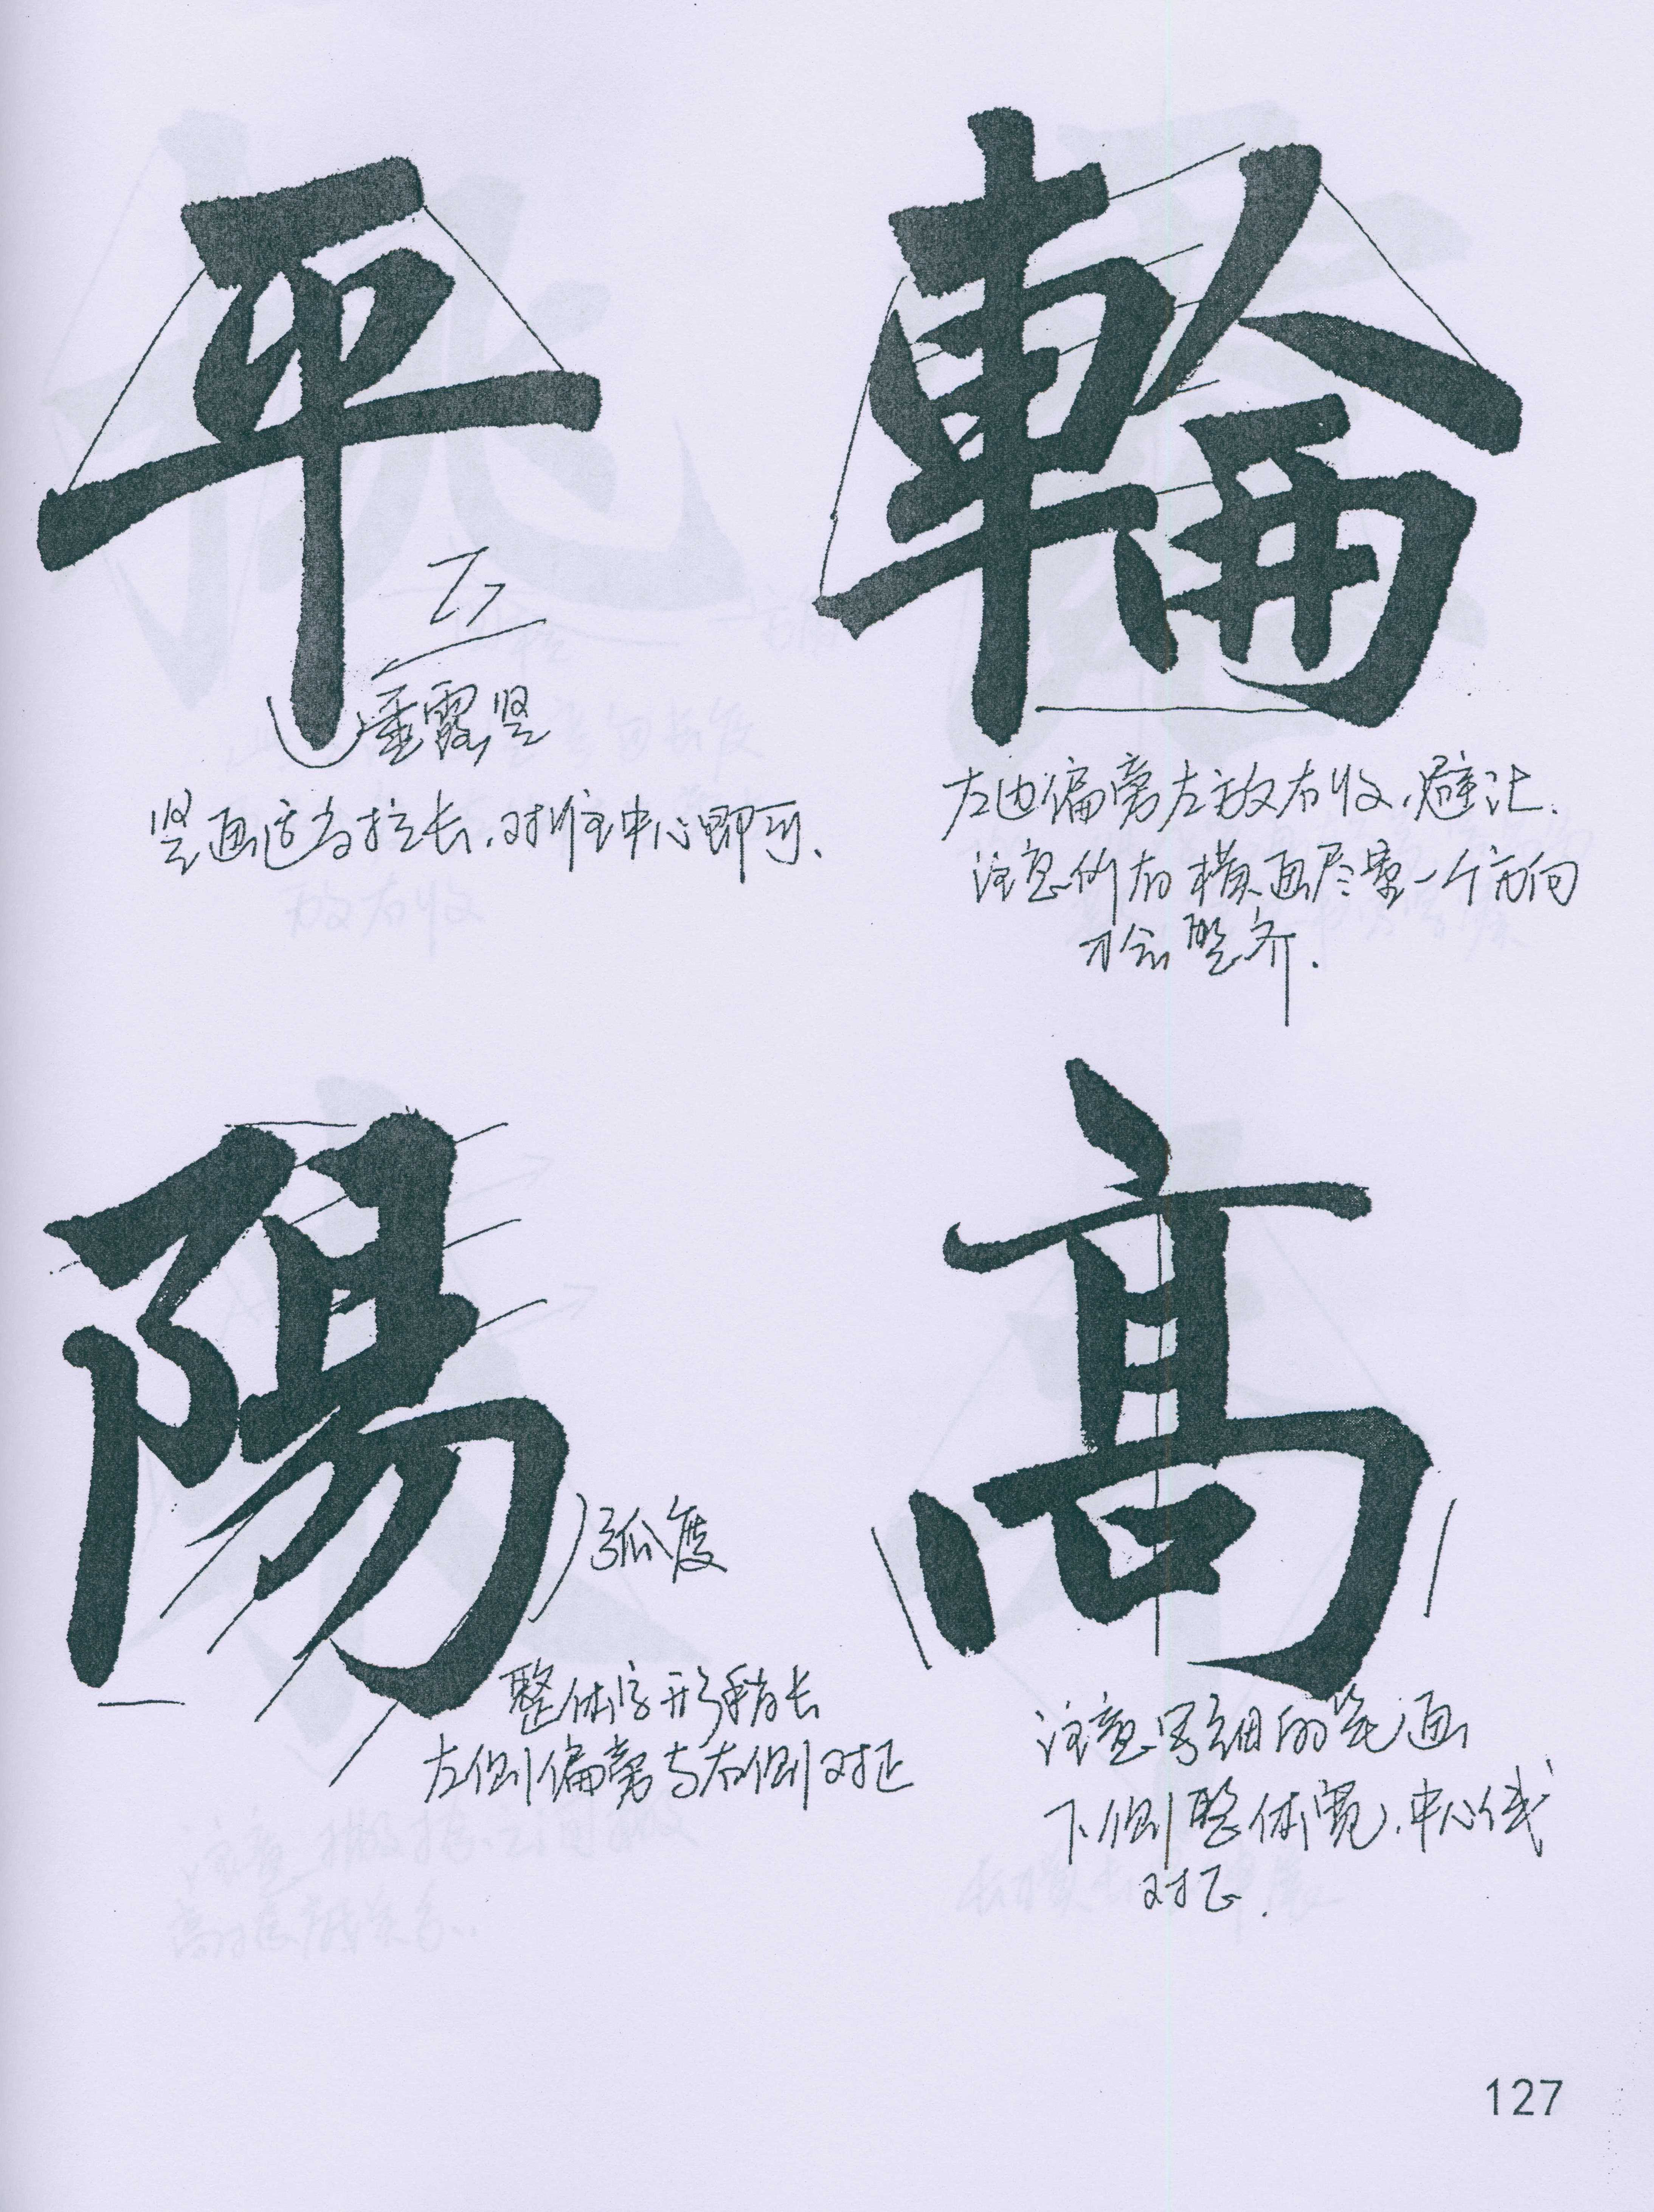 平
垂露竖
竖画适当拉长,对准中心即可、
輪
左边偏旁左放右收,避让.
注意所有横画尽量一个方向
才会整齐.
陽
弧度
整体字形稍长
左侧偏旁与右侧对正
高
注意写细的笔画
下侧整体宽,中心线
对正.
127